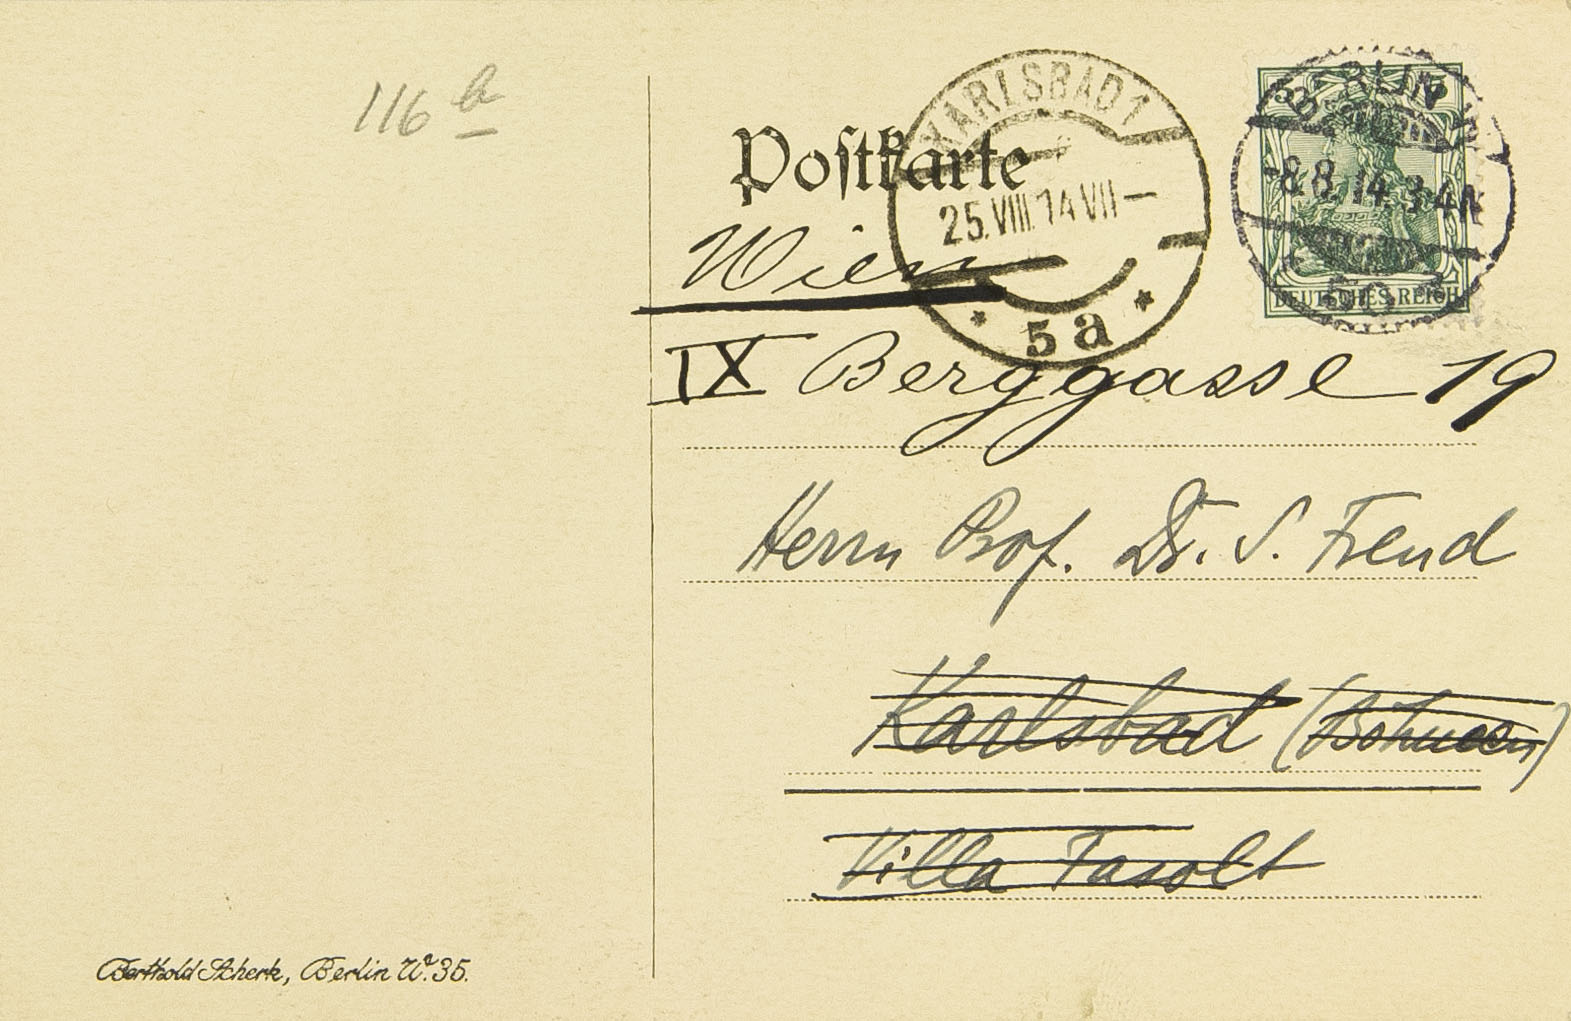 116 b
Postkarte
KARLSBAD 1
25.VIII.14 VII–
* 5a *
BERLIN W
-8.8.14.3-4N
DEUTSCHES REICH
Wien
IX Berggasse 19
Herrn Prof. Dr. S. Freud
Karlsbad (Böhmen)
Villa Fasolt
Berthold Scherk, Berlin W. 35.